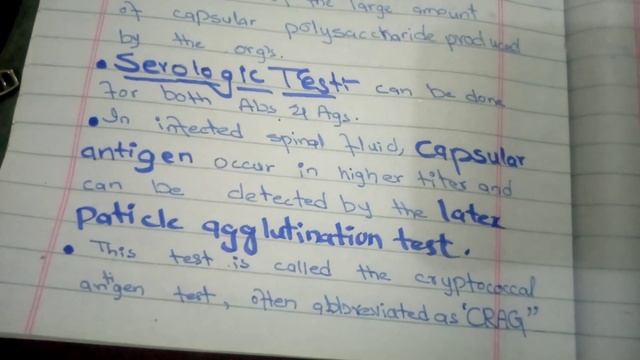 the large amount
of capsular polysaccharide produced
by the orgs.
• Serologic Test:- can be done
for both Abs. & Ags.
• In infected spinal fluid, capsular
antigen occur in higher titer and
can be detected by the latex
paticle agglutination test.
• This test is called the cryptococcal
antigen test, often abbreviated as "CRAG"